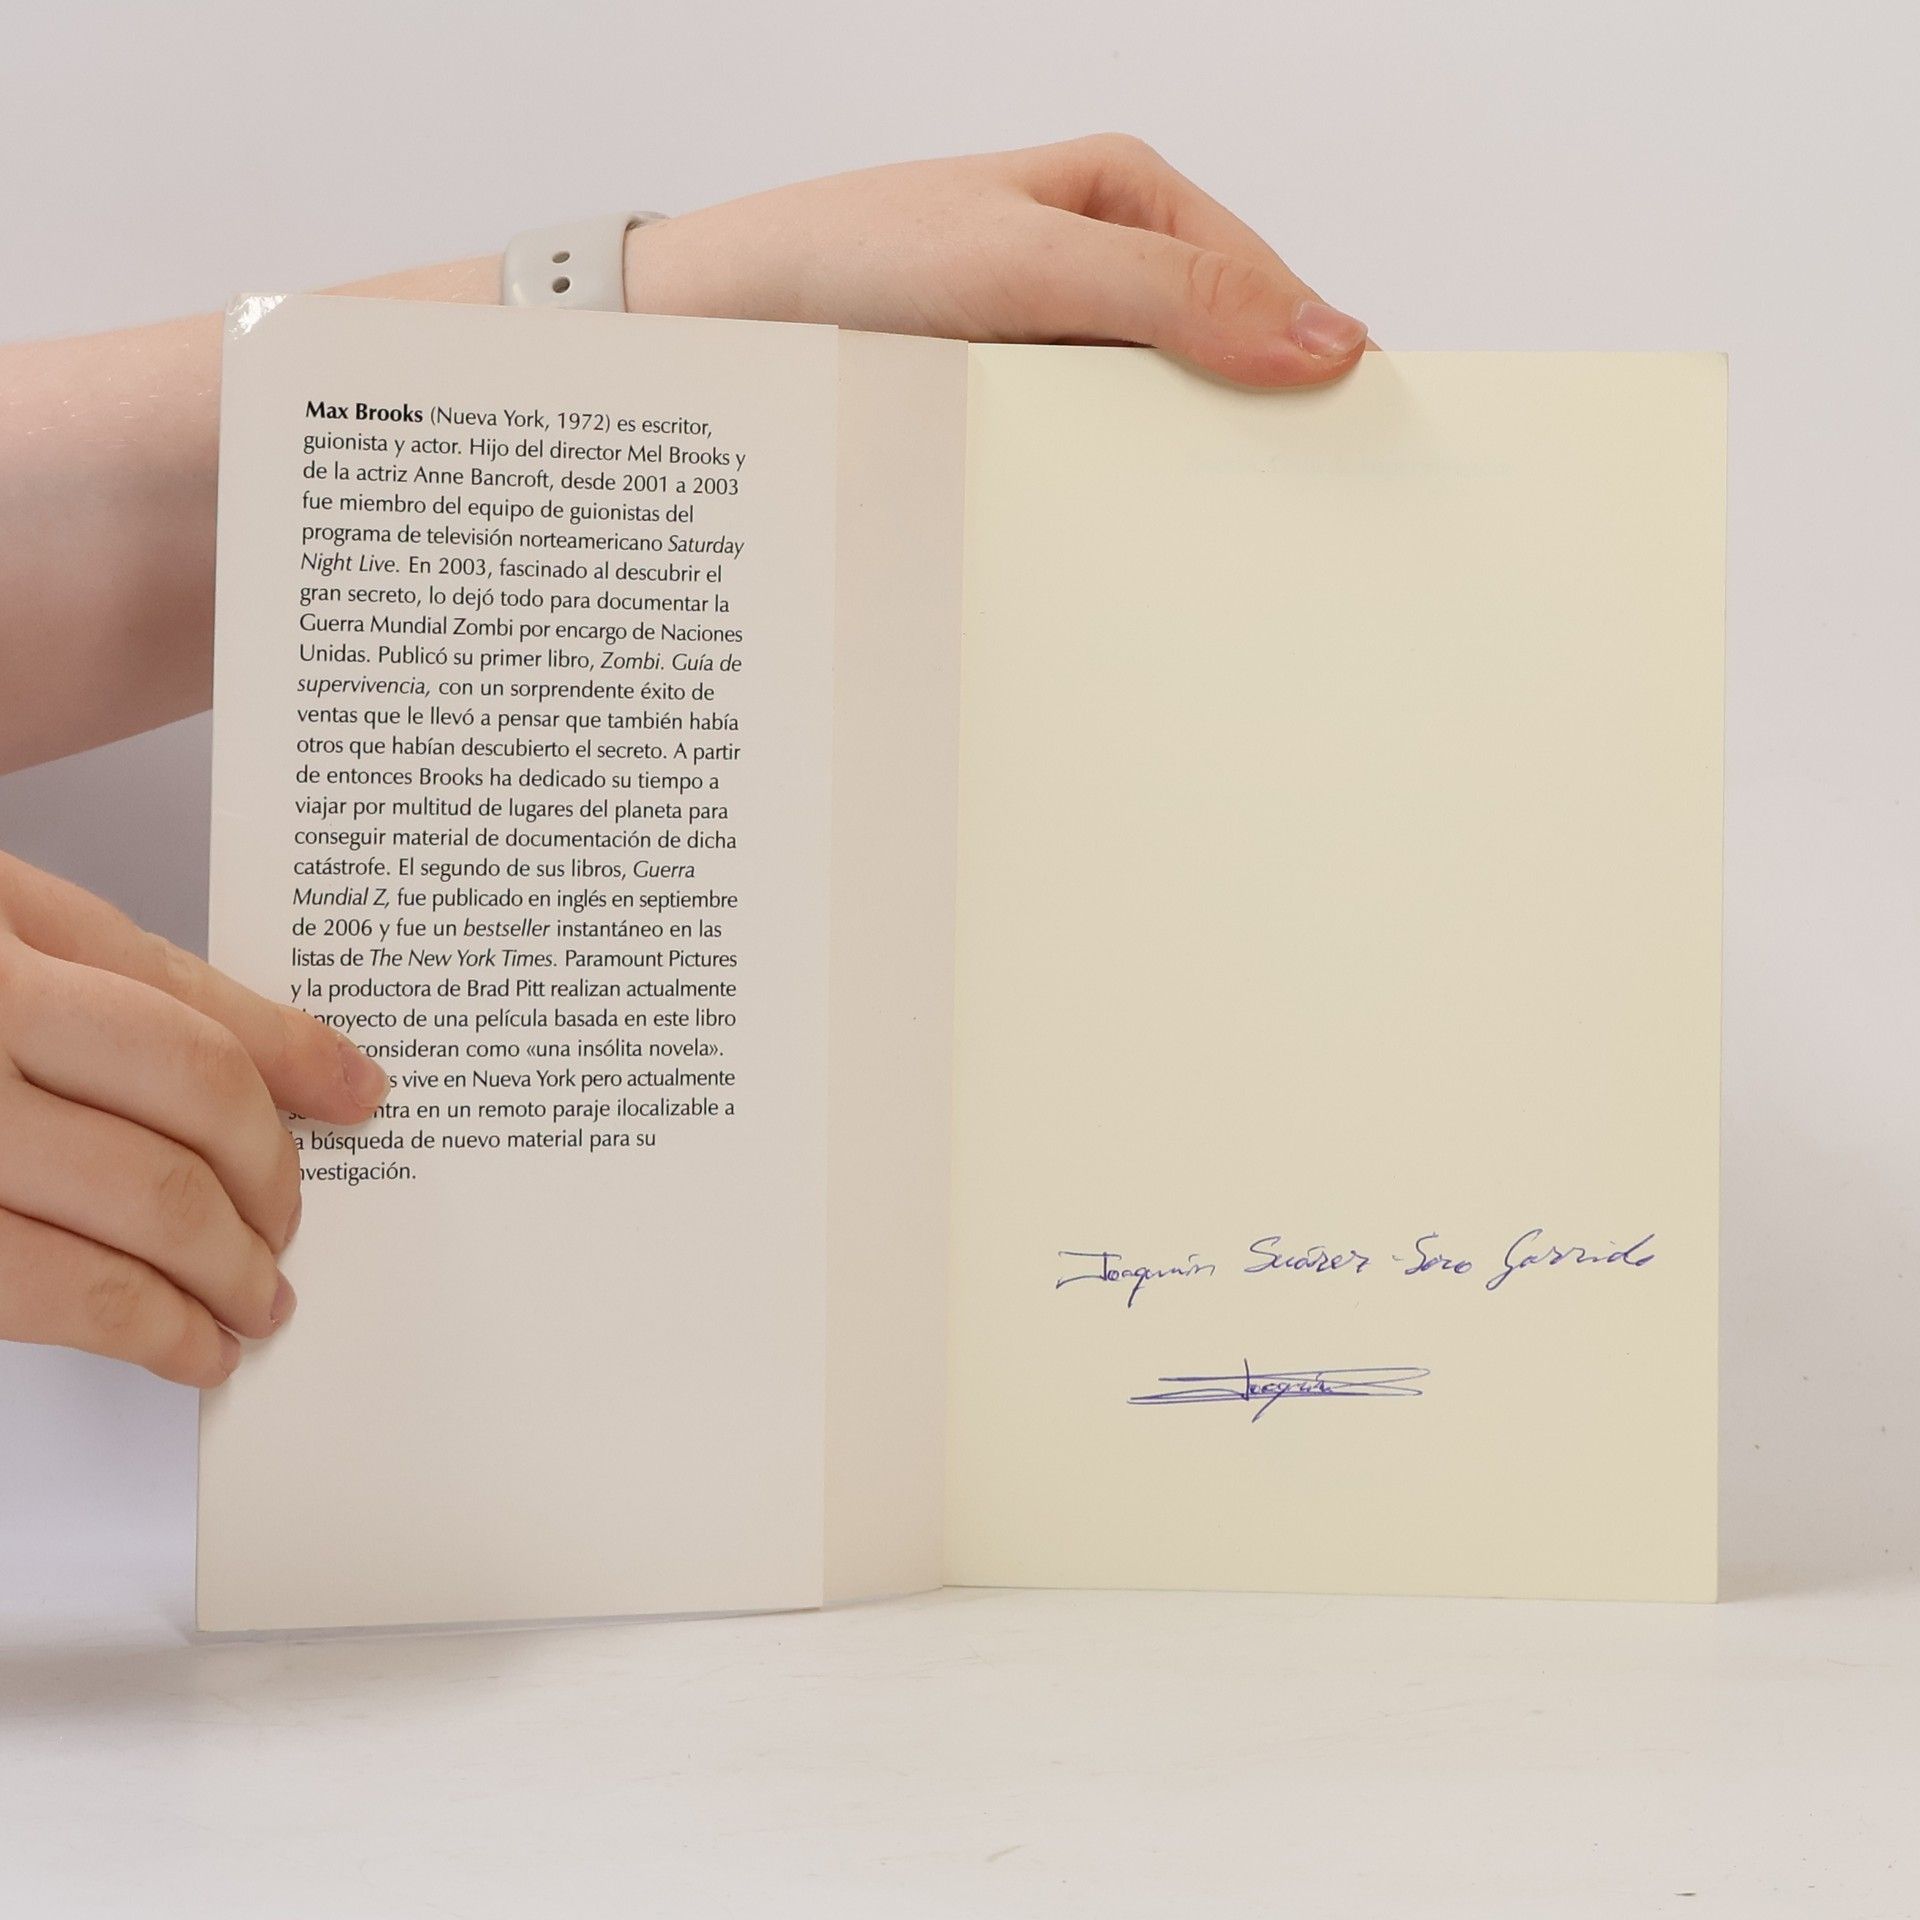 Max Brooks (Nueva York, 1972) es escritor,
guionista y actor. Hijo del director Mel Brooks y
de la actriz Anne Bancroft, desde 2001 a 2003
fue miembro del equipo de guionistas del
programa de televisión norteamericano Saturday
Night Live. En 2003, fascinado al descubrir el
gran secreto, lo dejó todo para documentar la
Guerra Mundial Zombi por encargo de Naciones
Unidas. Publicó su primer libro, Zombi. Guía de
supervivencia, con un sorprendente éxito de
ventas que le llevó a pensar que también había
otros que habían descubierto el secreto. A partir
de entonces Brooks ha dedicado su tiempo a
viajar por multitud de lugares del planeta para
conseguir material de documentación de dicha
catástrofe. El segundo de sus libros, Guerra
Mundial Z, fue publicado en inglés en septiembre
de 2006 y fue un bestseller instantáneo en las
listas de The New York Times. Paramount Pictures
y la productora de Brad Pitt realizan actualmente
proyecto de una película basada en este libro
consideran como «una insólita novela».
vive en Nueva York pero actualmente
en un remoto paraje ilocalizable a
la búsqueda de nuevo material para su
investigación.
Joaquín Suárez-Soro Garrido
Joaquín